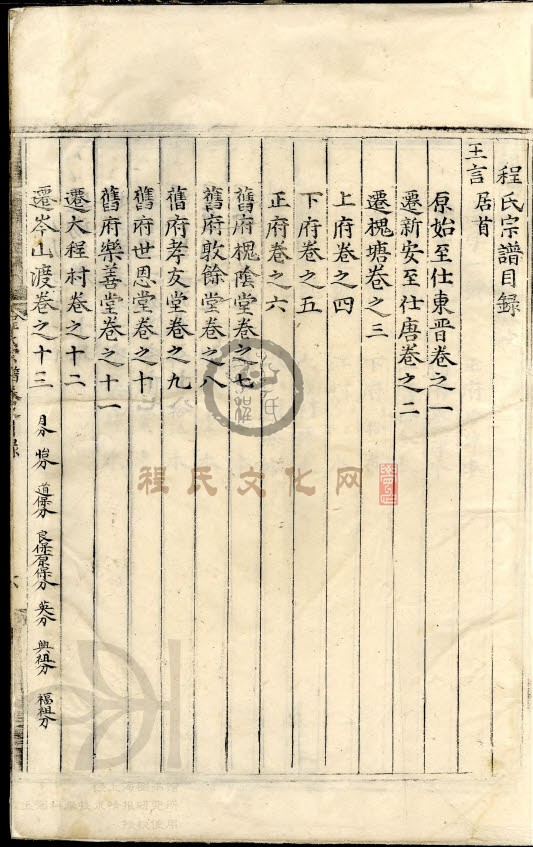 程氏宗譜目録
王言居首
原始至仕東晋卷之一
遷新安至仕唐卷之二
遷槐塘卷之三
上府卷之四
下府卷之五
正府卷之六
舊府槐陰堂卷之七
舊府敦餘堂卷之八
舊府孝友堂卷之九
舊府世恩堂卷之十
舊府樂善堂卷之十一
遷大程村卷之十二
遷岑山渡卷之十三 道保分 良保原保分 英分 興祖分 福祖分
程氏文化网